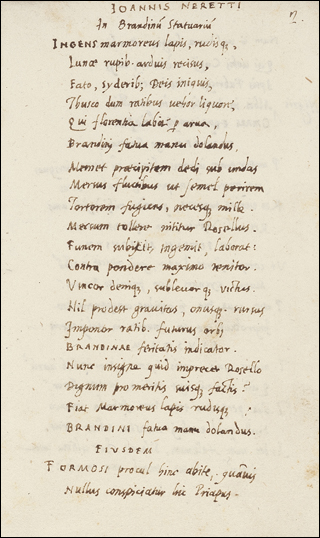 IOANNIS NERETTI
In Brandinū Statuariū
INGENS marmoreus lapis, rudisq;,
Lunæ rupib. arduis recisus,
Fato, syderib; Deis iniquis,
Thusco dum ratibus uehor liquore,
Qui florentia labit p arua,
Brandinj fatua manu dolandus.
Memet præcipitem dedj sub undas
Mersus fluctibus ut semel perirem
Tortorem fugiens, necesq; mille.
Mecum tollere nititur Rosellus.
Funem subijcit, ingemit, laborat:
Contra pondere maximo renitor.
Vincor deniq;, subleuorq; victus.
Nil prodest grauitas, onusq;. rursus
Imponor ratib. futurus orbj
BRANDINAE feritatis indicator.
Nunc insigne quid imprecer Rosello
Dignum pro meritis suisq; factis?
Fiat Marmoreus lapis rudisq;
BRANDINI fatua manu dolandus.
EIUSDEM
FORMOSI procul hinc abite, quāuis
Nullus conspiciatur hic Priapus.